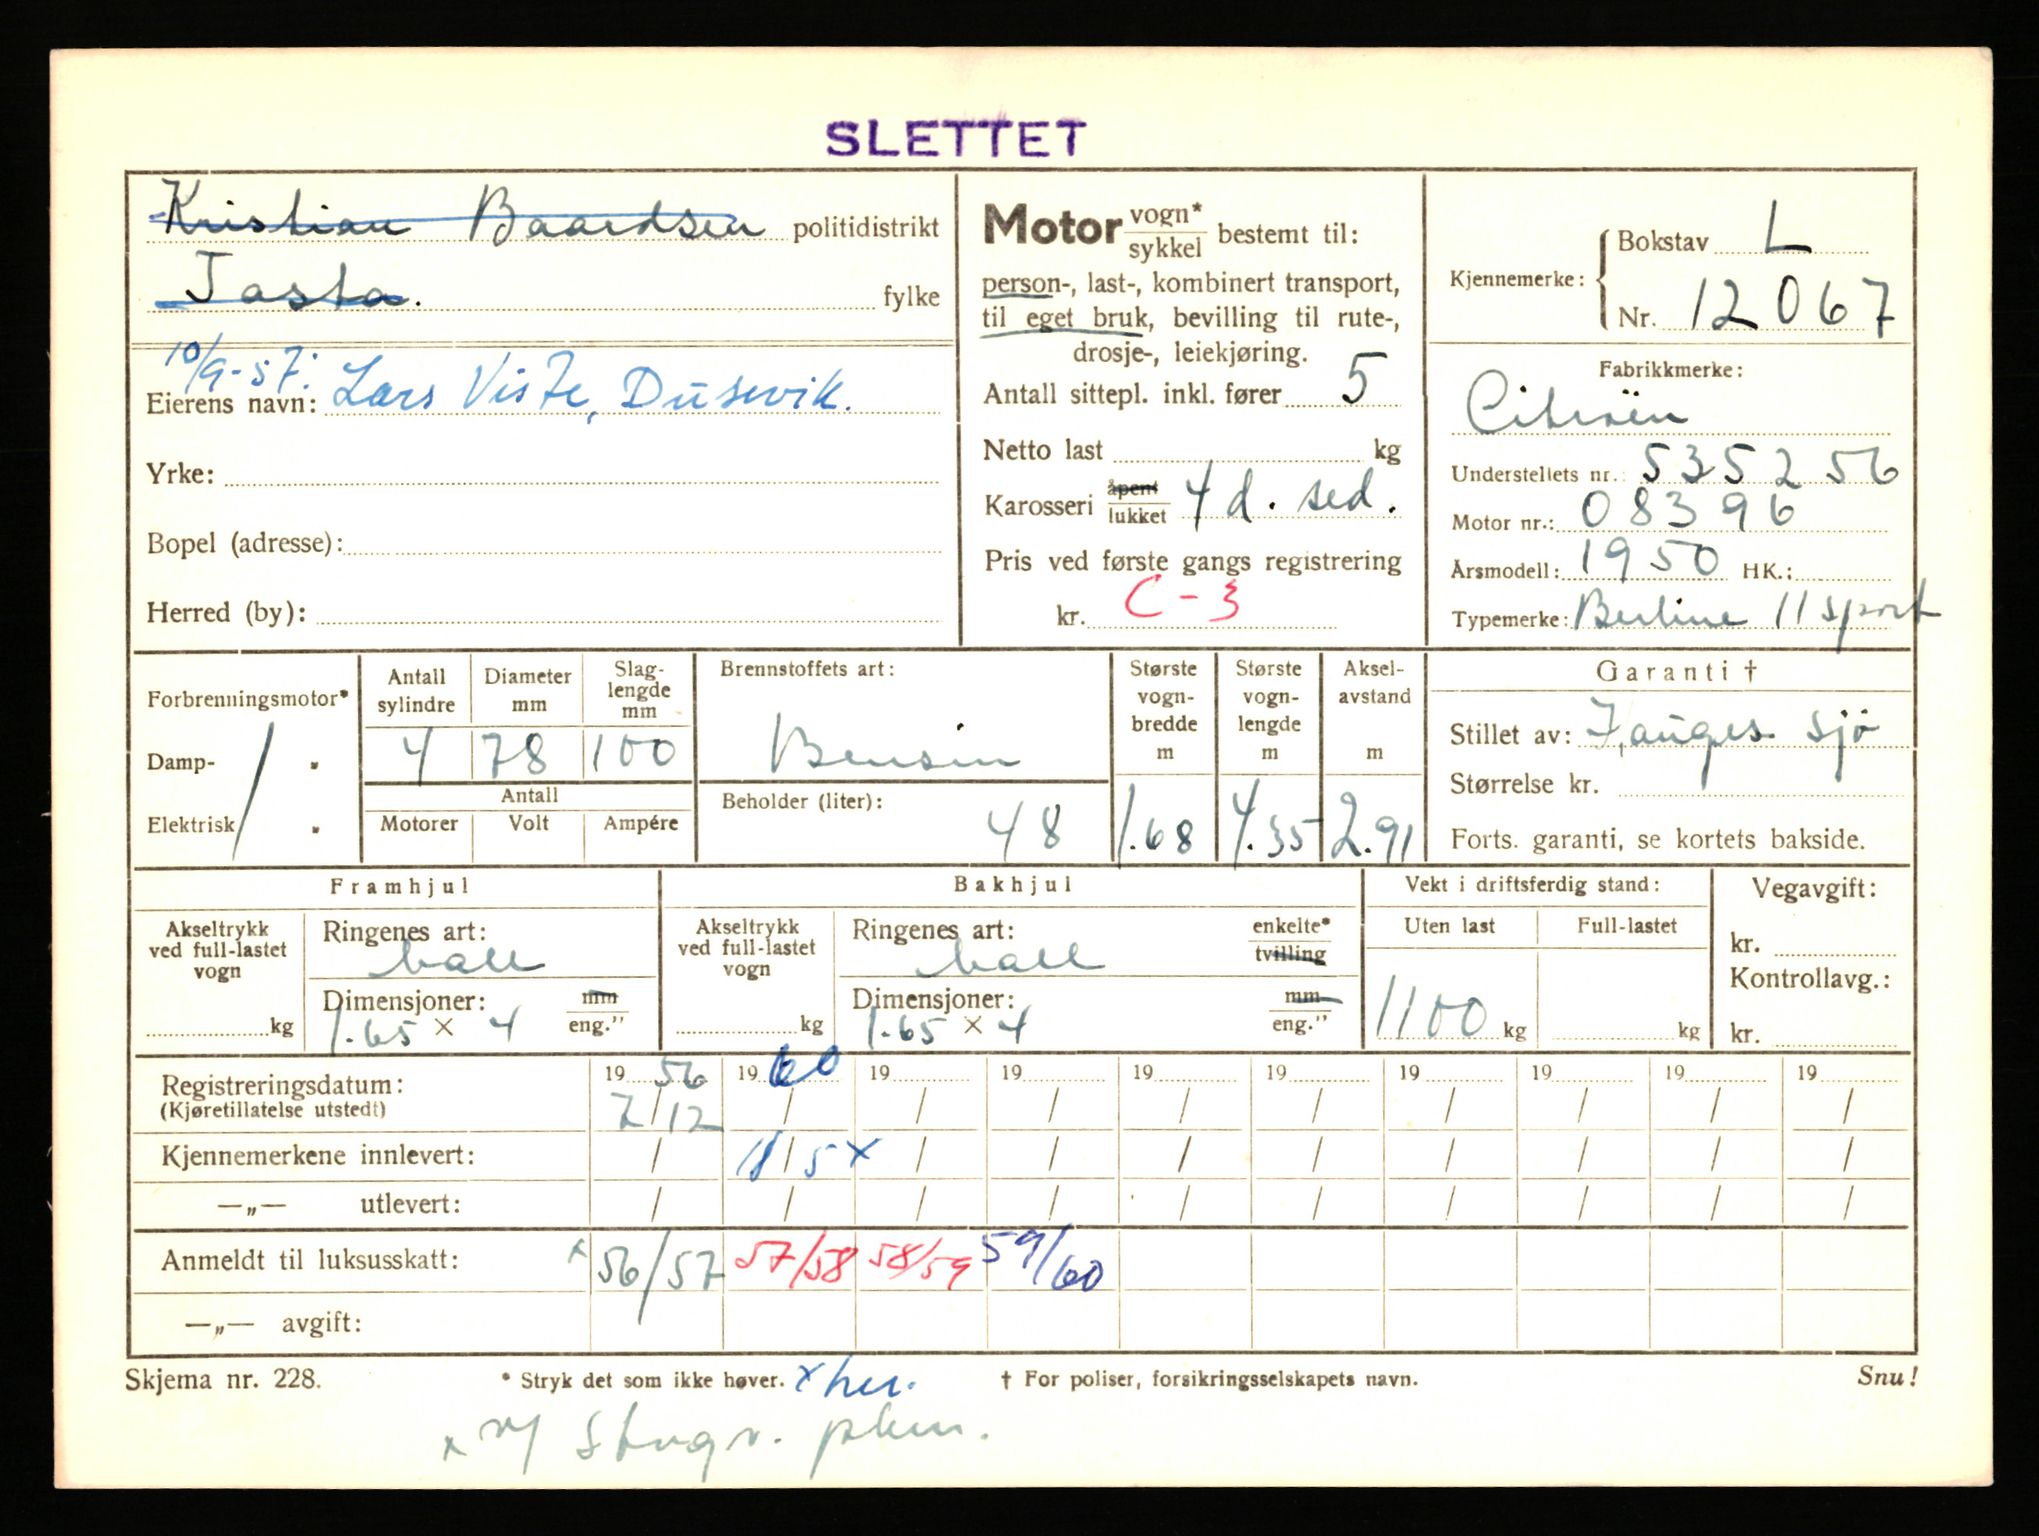 SLETTET
Kristian Baardsen politidistrikt
Tasta. fylke
10/9-57:
Eierens navn: Lars Viste, Dusevik.
Yrke:
Bopel (adresse):
Herred (by):
Motor vogn* / sykkel bestemt til:
person-, last-, kombinert transport,
til eget bruk, bevilling til rute-,
drosje-, leiekjøring.
Antall sittepl. inkl. fører 5
Netto last kg
Karosseri åpent / lukket 4 d. sed.
Pris ved første gangs registrering
kr. C-3
Kjennemerke: Bokstav L
Nr. 12067
Fabrikkmerke:
Citroën
Understellets nr.: 535256
Motor nr.: 08396
Årsmodell: 1950 HK.:
Typemerke: Berline 11 sport
Forbrenningsmotor*
Damp- "
Elektrisk "
Antall sylindre 4
Diameter mm 78
Slaglengde mm 100
Antall
Motorer Volt Ampére
Brennstoffets art:
Bensin
Beholder (liter): 48
Største vognbredde m 1.68
Største vognlengde m 4.35
Akselavstand m 2.91
Garanti †
Stillet av: Hauges sjø
Størrelse kr.
Forts. garanti, se kortets bakside.
Framhjul
Akseltrykk ved full-lastet vogn kg
Ringenes art: ball
Dimensjoner: mm / eng."
1.65 x 4
Bakhjul
Akseltrykk ved full-lastet vogn kg
Ringenes art: ball enkelte* / tvilling
Dimensjoner: mm / eng."
1.65 x 4
Vekt i driftsferdig stand:
Uten last Full-lastet
1100 kg kg
Vegavgift:
kr.
Kontrollavg.:
kr.
Registreringsdatum: 19 56 19 60 19 19 19 19 19 19 19 19
(Kjøretillatelse utstedt) 7/12 / / / / / / / / /
Kjennemerkene innlevert: / 18/5 x / / / / / / / /
—„— utlevert: / / / / / / / / / /
Anmeldt til luksusskatt: x 56/57 57/58 58/59 59/60
—„— avgift:
Skjema nr. 228. * Stryk det som ikke høver. x her. † For poliser, forsikringsselskapets navn. Snu!
x